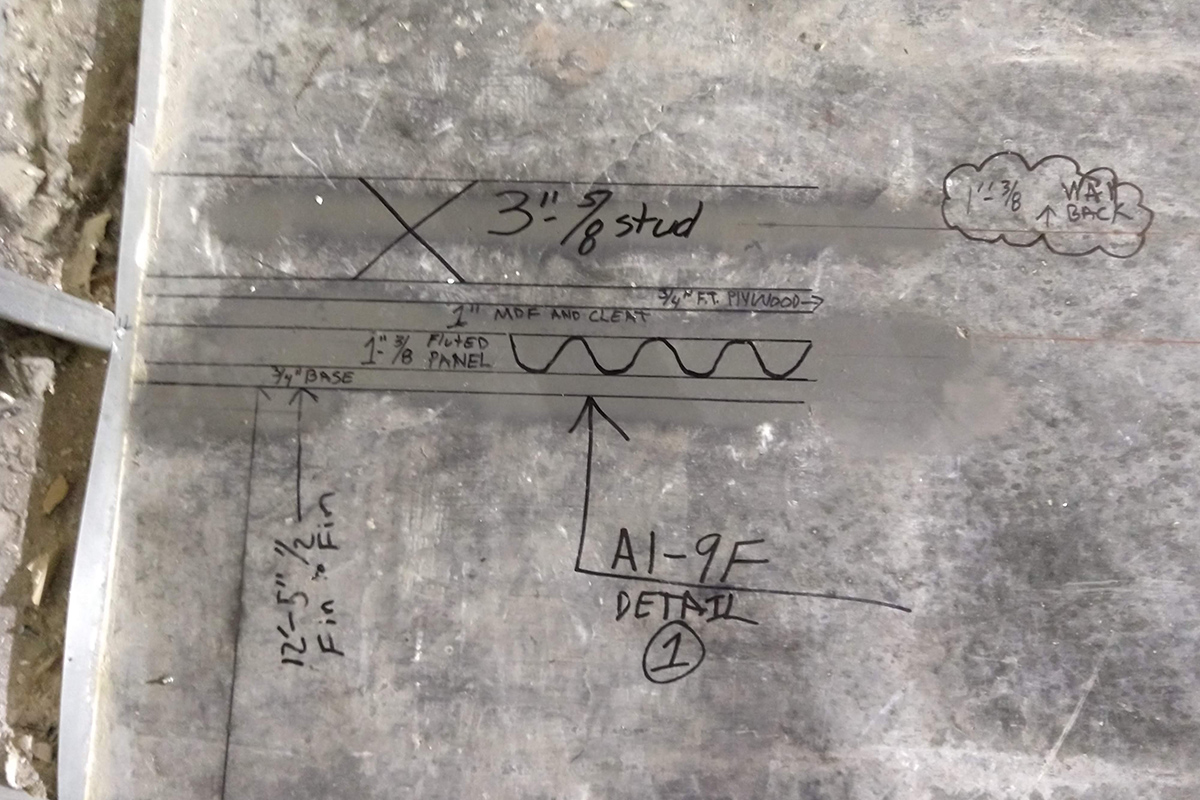 3"-5/8 stud
1"-3/8 ↑ WAY
BACK
3/4" F.T. PLYWOOD→
1" MDF AND CLEAT
1"-3/8 FLUTED
PANEL
3/4" BASE
12'-5" 1/2
Fin to Fin
A1-9F
DETAIL
1